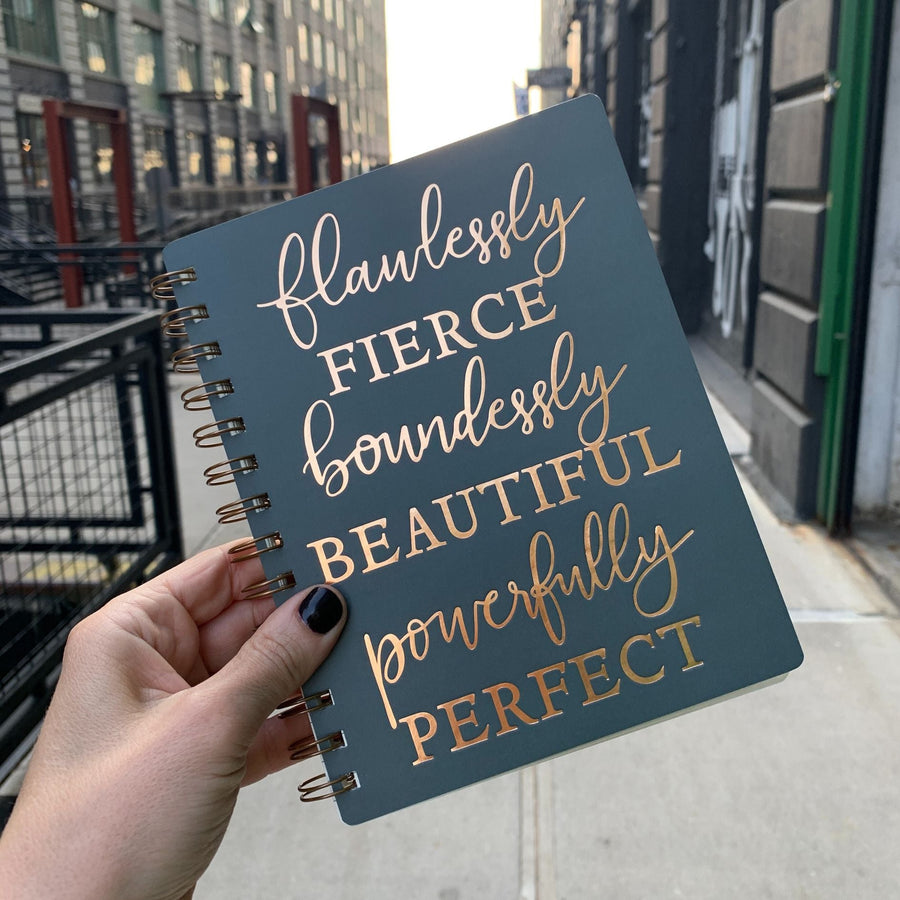 flawlessly
FIERCE
boundlessly
BEAUTIFUL
powerfully
PERFECT